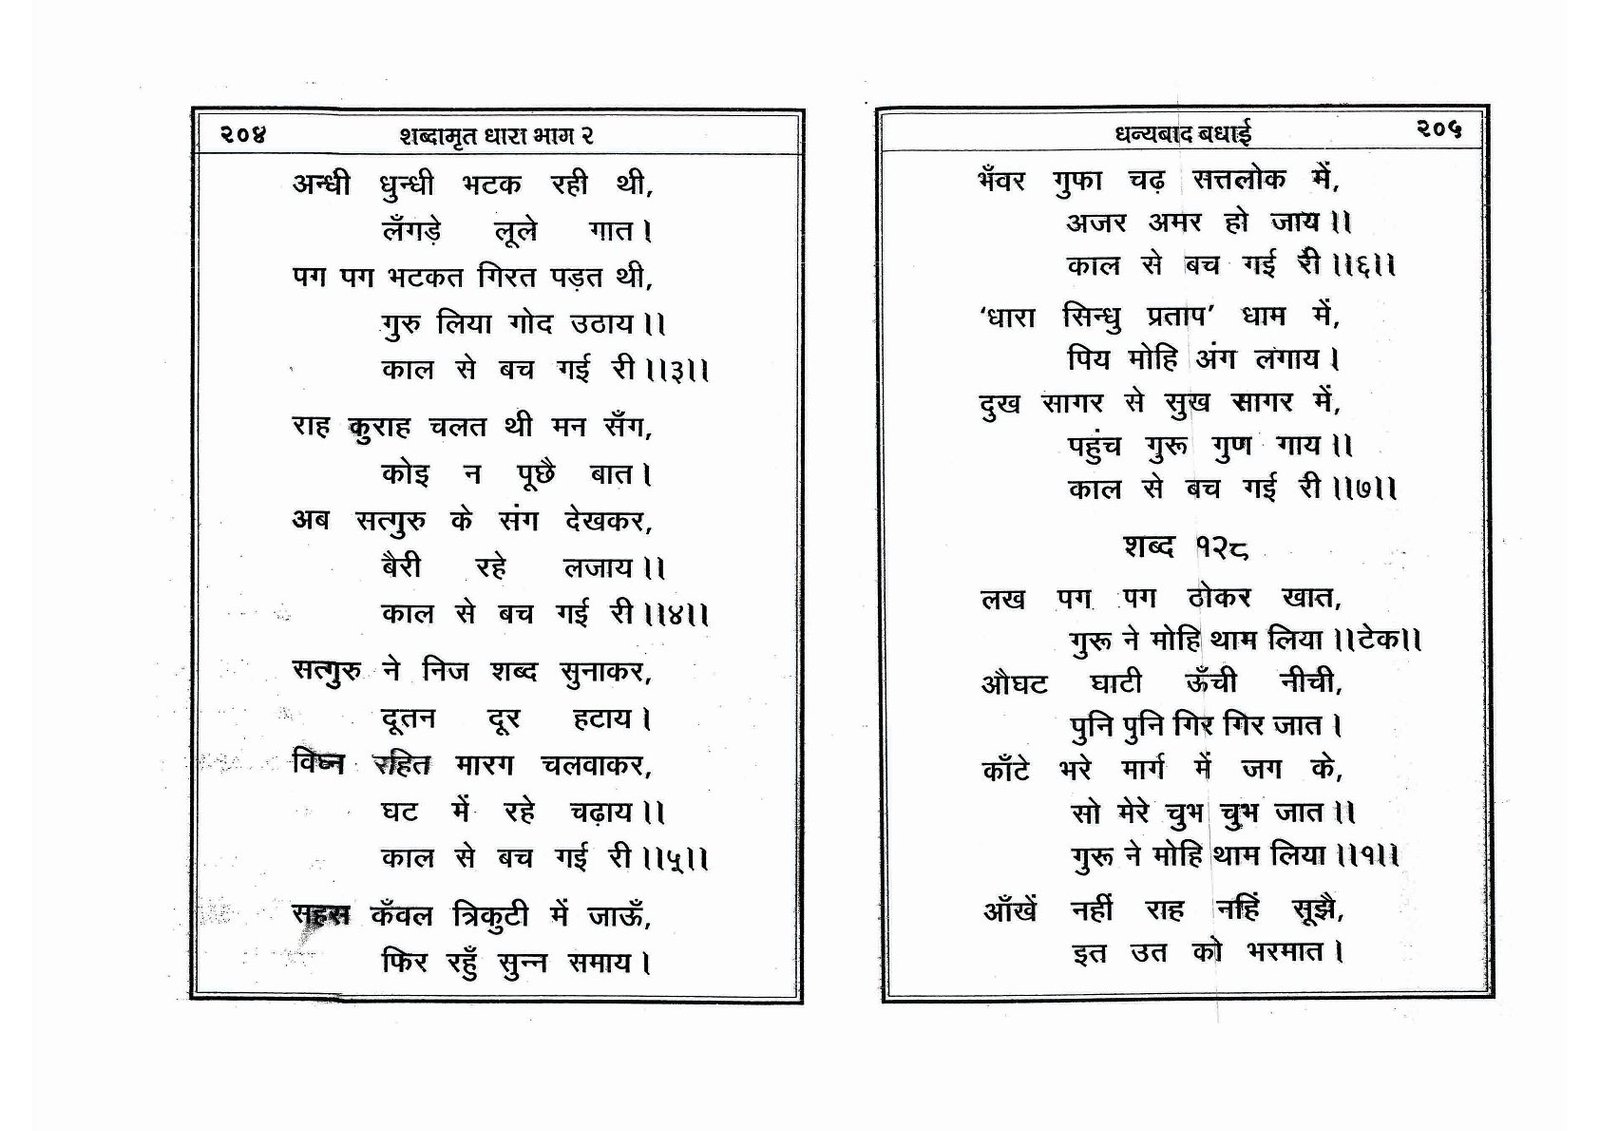 २०४ शब्दामृत धारा भाग २
अन्धी धुन्धी भटक रही थी,
लँगड़े लूले गात।
पग पग भटकत गिरत पड़त थी,
गुरु लिया गोद उठाय।।
काल से बच गई री।।३।।
राह कुराह चलत थी मन सँग,
कोइ न पूछै बात।
अब सत्गुरु के संग देखकर,
बैरी रहे लजाय।।
काल से बच गई री।।४।।
सत्गुरु ने निज शब्द सुनाकर,
दूतन दूर हटाय।
विघ्न रहित मारग चलवाकर,
घट में रहे चढ़ाय।।
काल से बच गई री।।५।।
सहस कँवल त्रिकुटी में जाऊँ,
फिर रहुँ सुन्न समाय।
धन्यबाद बधाई २०५
भँवर गुफा चढ़ सत्तलोक में,
अजर अमर हो जाय।।
काल से बच गई री।।६।।
‘धारा सिन्धु प्रताप’ धाम में,
पिय मोहि अंग लगाय।
दुख सागर से सुख सागर में,
पहुंच गुरू गुण गाय।।
काल से बच गई री।।७।।
शब्द १२८
लख पग पग ठोकर खात,
गुरू ने मोहि थाम लिया।।टेक।।
औघट घाटी ऊँची नीची,
पुनि पुनि गिर गिर जात।
काँटे भरे मार्ग में जग के,
सो मेरे चुभ चुभ जात।।
गुरू ने मोहि थाम लिया।।१।।
आँखें नहीं राह नहिं सूझै,
इत उत को भरमात।